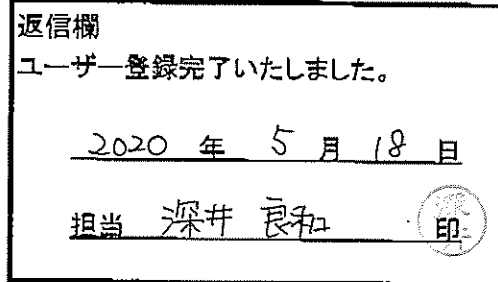 返信欄
ユーザー登録完了いたしました。
2020 年 5 月 18 日
担当 深井 良和 印
深井